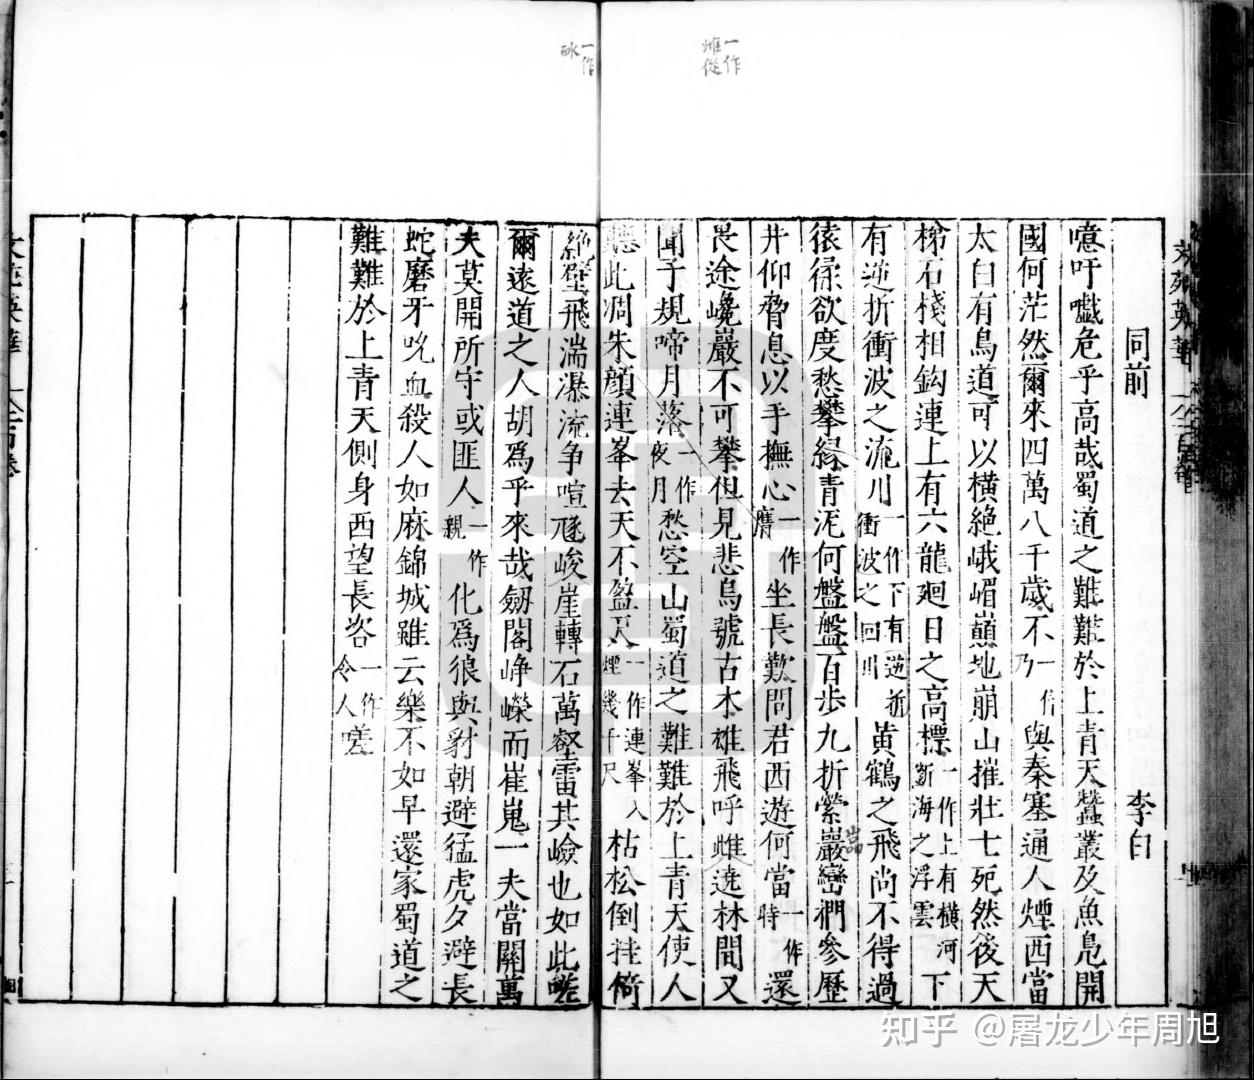 一作
雌從
一作
砅
文苑英華
同前
李白
噫吁嚱危乎高哉蜀道之難難於上青天蠶叢及魚鳧開
國何茫然爾來四萬八千歲不一作乃與秦塞通人煙西當
太白有鳥道可以橫絶峨嵋巔地崩山摧壯士死然後天
梯石棧相鈎連上有六龍廻日之高標一作上有橫河斷海之浮雲下
有逆折衝波之流川一作下有逆折衝波之回川黃鶴之飛尚不得過
猿猱欲度愁攀縁青泥何盤盤百步九折縈巖巒捫參歷
井仰脅息以手撫心一作膺坐長歎問君西遊何當一作時還
畏途巉巖不可攀但見悲鳥號古木雄飛呼雌遶林間又
聞子規啼月落一作夜月愁空山蜀道之難難於上青天使人
聽此凋朱顔連峯去天不盈尺一作連峯入煙幾千尺枯松倒挂倚
絶壁飛湍瀑流争喧豗峻崖轉石萬壑雷其嶮也如此嗟
爾遠道之人胡爲乎來哉劒閣峥嶸而崔嵬一夫當關萬
夫莫開所守或匪人一作親化爲狼與豺朝避猛虎夕避長
蛇磨牙吮血殺人如麻錦城雖云樂不如早還家蜀道之
難難於上青天側身西望長咨一作令人嗟
文苑英華
知乎 @屠龙少年周旭